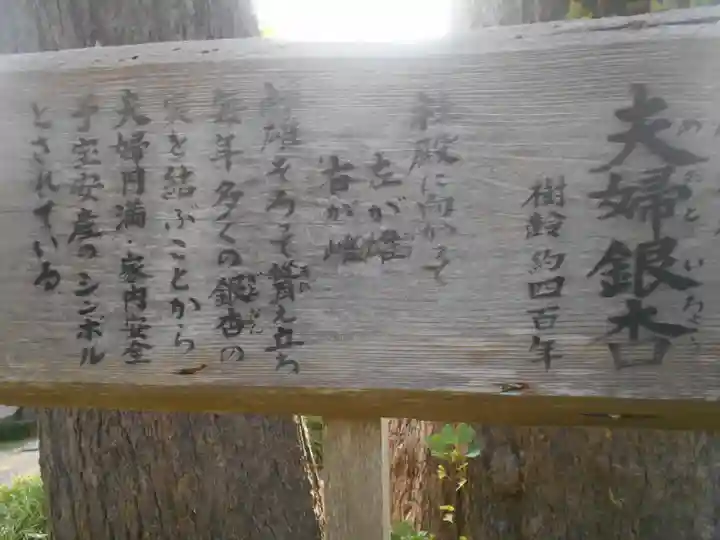 夫婦銀杏
樹齢約四百年
社殿に向かって
左が雄
右が雌
雌雄そろって え立ち
毎年多くの銀杏の
実を結ぶことから
夫婦円満・家内安全
子宝安産のシンボル
とされている